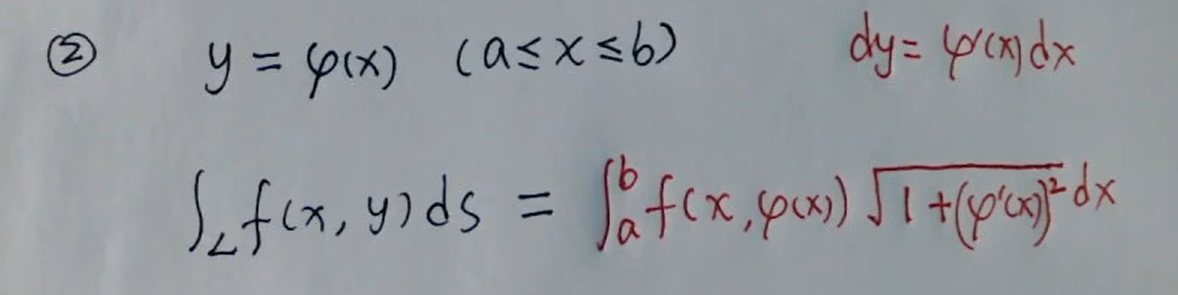 ② y = φ(x) (a≤x≤b) dy = φ'(x)dx
∫_L f(x, y)ds = ∫_a^b f(x, φ(x)) √(1+(φ'(x))²) dx